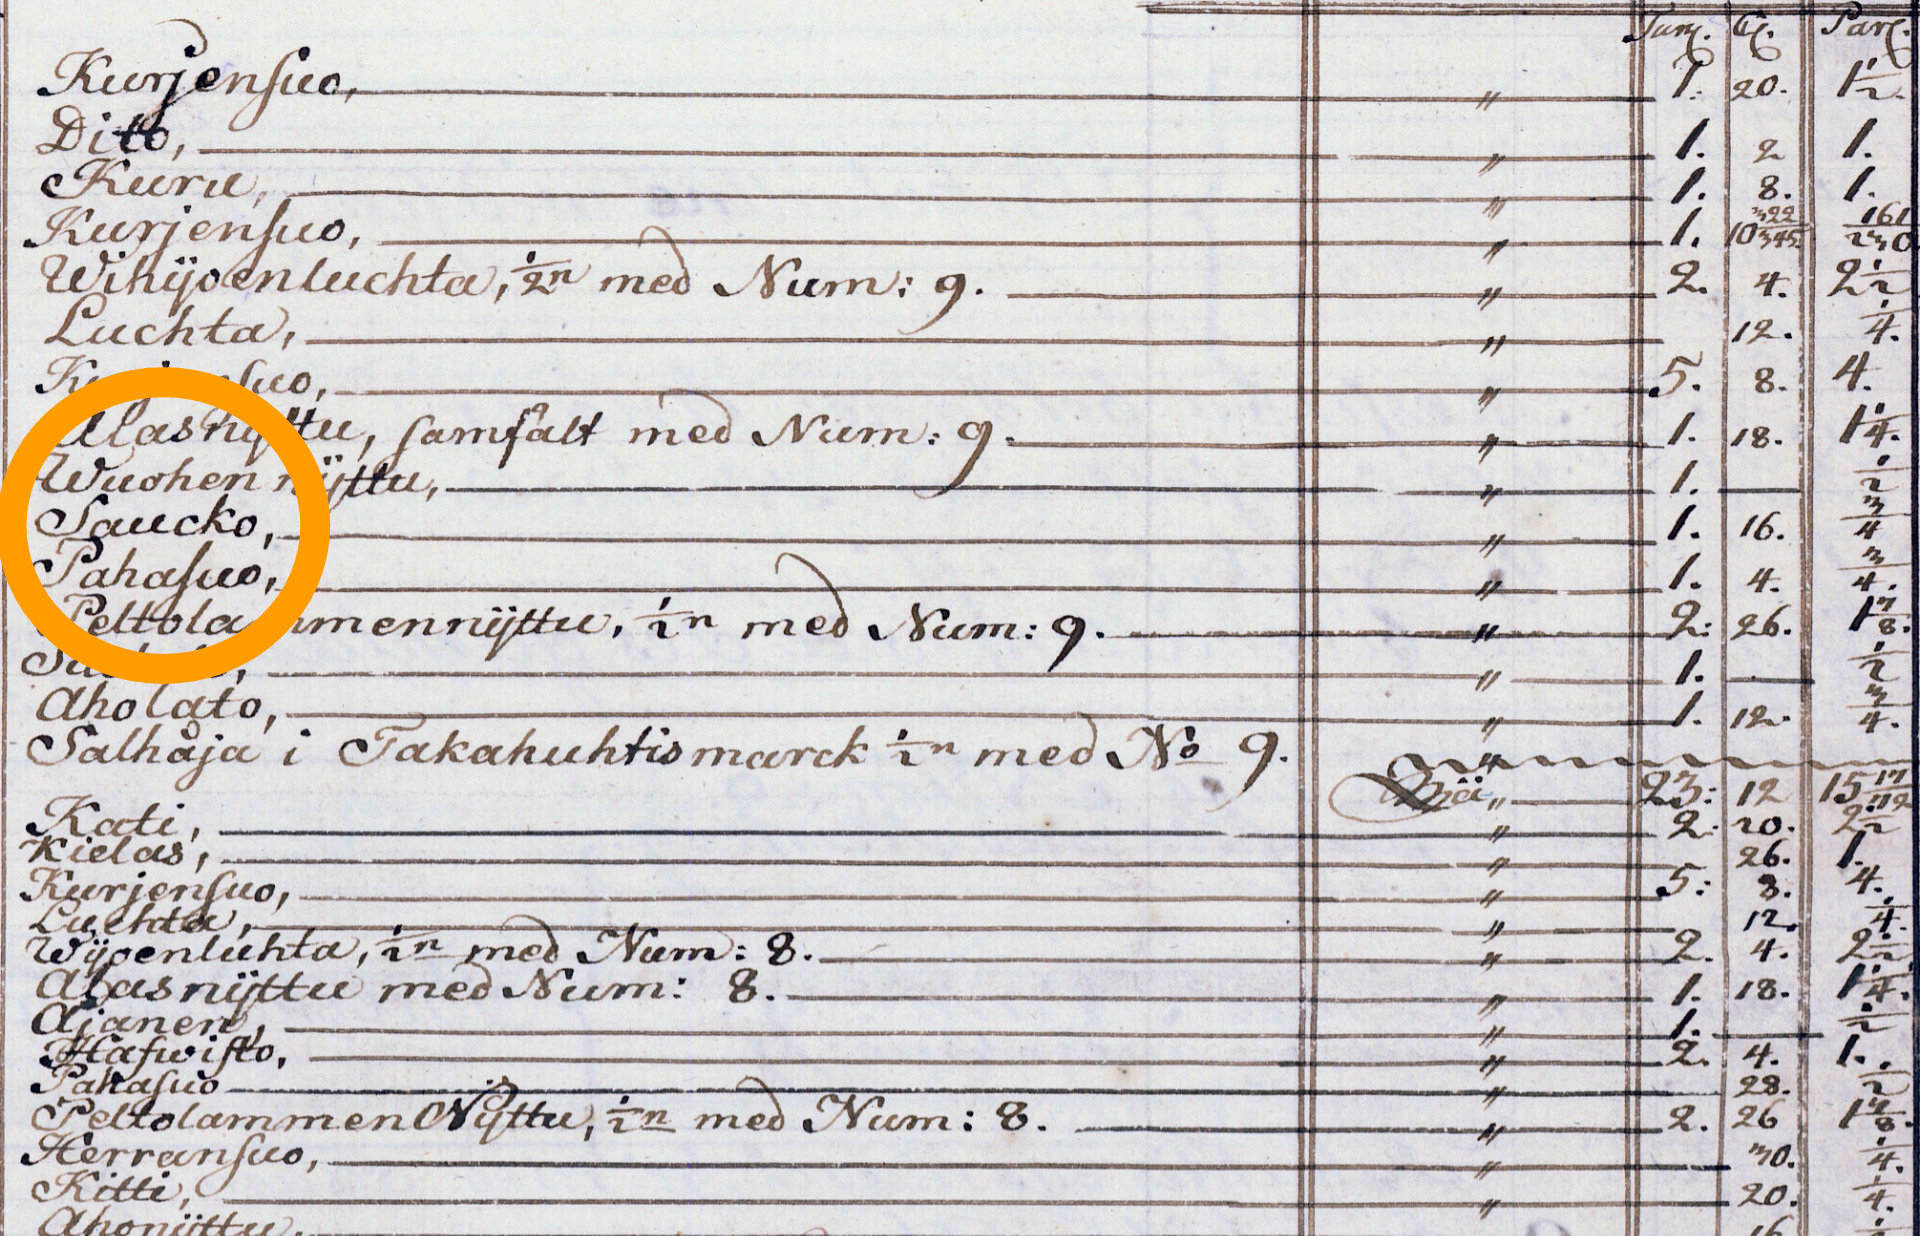 Tunl. Cl. Parl.
Kurjensuo, " 1. 20. 1 1/2.
Dito, " 1. 2 1.
Kuru, " 1. 8. 1.
Kurjensuo, " 1. 10 322/345 161/230
Wihijoenluchta, 1/2n med Num: 9. " 2. 4. 2 1/2
Luchta, " 12. 1/4.
suo, " 5. 8. 4.
Alasnijttu, samfält med Num: 9. " 1. 18. 1 1/4.
Wuohen nijttu, " 1. 1/2
Saucko, " 1. 16. 3/4
Pahasuo, " 1. 4. 3/4.
Peltolammennijttu, 1/2n med Num: 9. " 2: 26. 1 7/8.
" 1. 1/2
Aholato, " 1. 12. 3/4.
Salhåja i Takahuhtismarck 1/2n med No 9. "
" 23: 12 15 17/112
Kati, " 2: 20. 2 1/2
Kielas, " 26. 1.
Kurjensuo, " 5: 8. 4.
Luchta, " 12. 1/4.
Wijoenluhta, 1/2n med Num: 8. " 2. 4. 2 1/2
Alasnijttu med Num: 8. " 1. 18. 1 1/4.
Ajanen, " 1. 1/2
Hafwisto, " 2. 4. 1.
Pahasuo " 28. 1/2
Peltolammen Nijttu, 1/2n med Num: 8. " 2. 26 1 7/8.
Herransuo, " 30. 1/4.
Kitti, " 20. 1/4.
Ahonijttu, 16